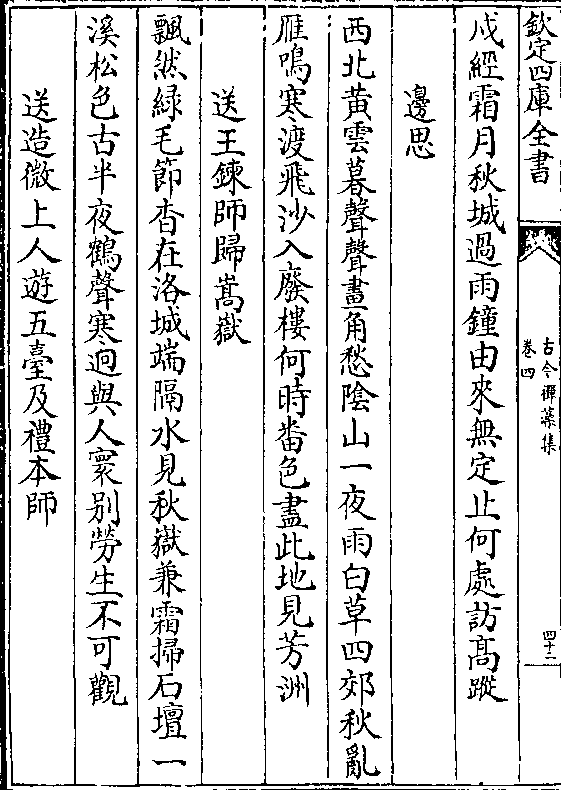 欽定四庫全書
古今禪藻集
卷四
四十二
戍經霜月秋城過雨鐘由來無定止何處訪髙蹤
邊思
西北黃雲暮聲聲畫角愁隂山一夜雨白草四郊秋亂
雁鳴寒渡飛沙入廢樓何時畨色盡此地見芳洲
送王鍊師歸嵩嶽
飄然綠毛節杳在洛城端隔水見秋嶽兼霜掃石壇一
溪松色古半夜鶴聲寒迥與人寰别勞生不可觀
送造微上人遊五臺及禮本師